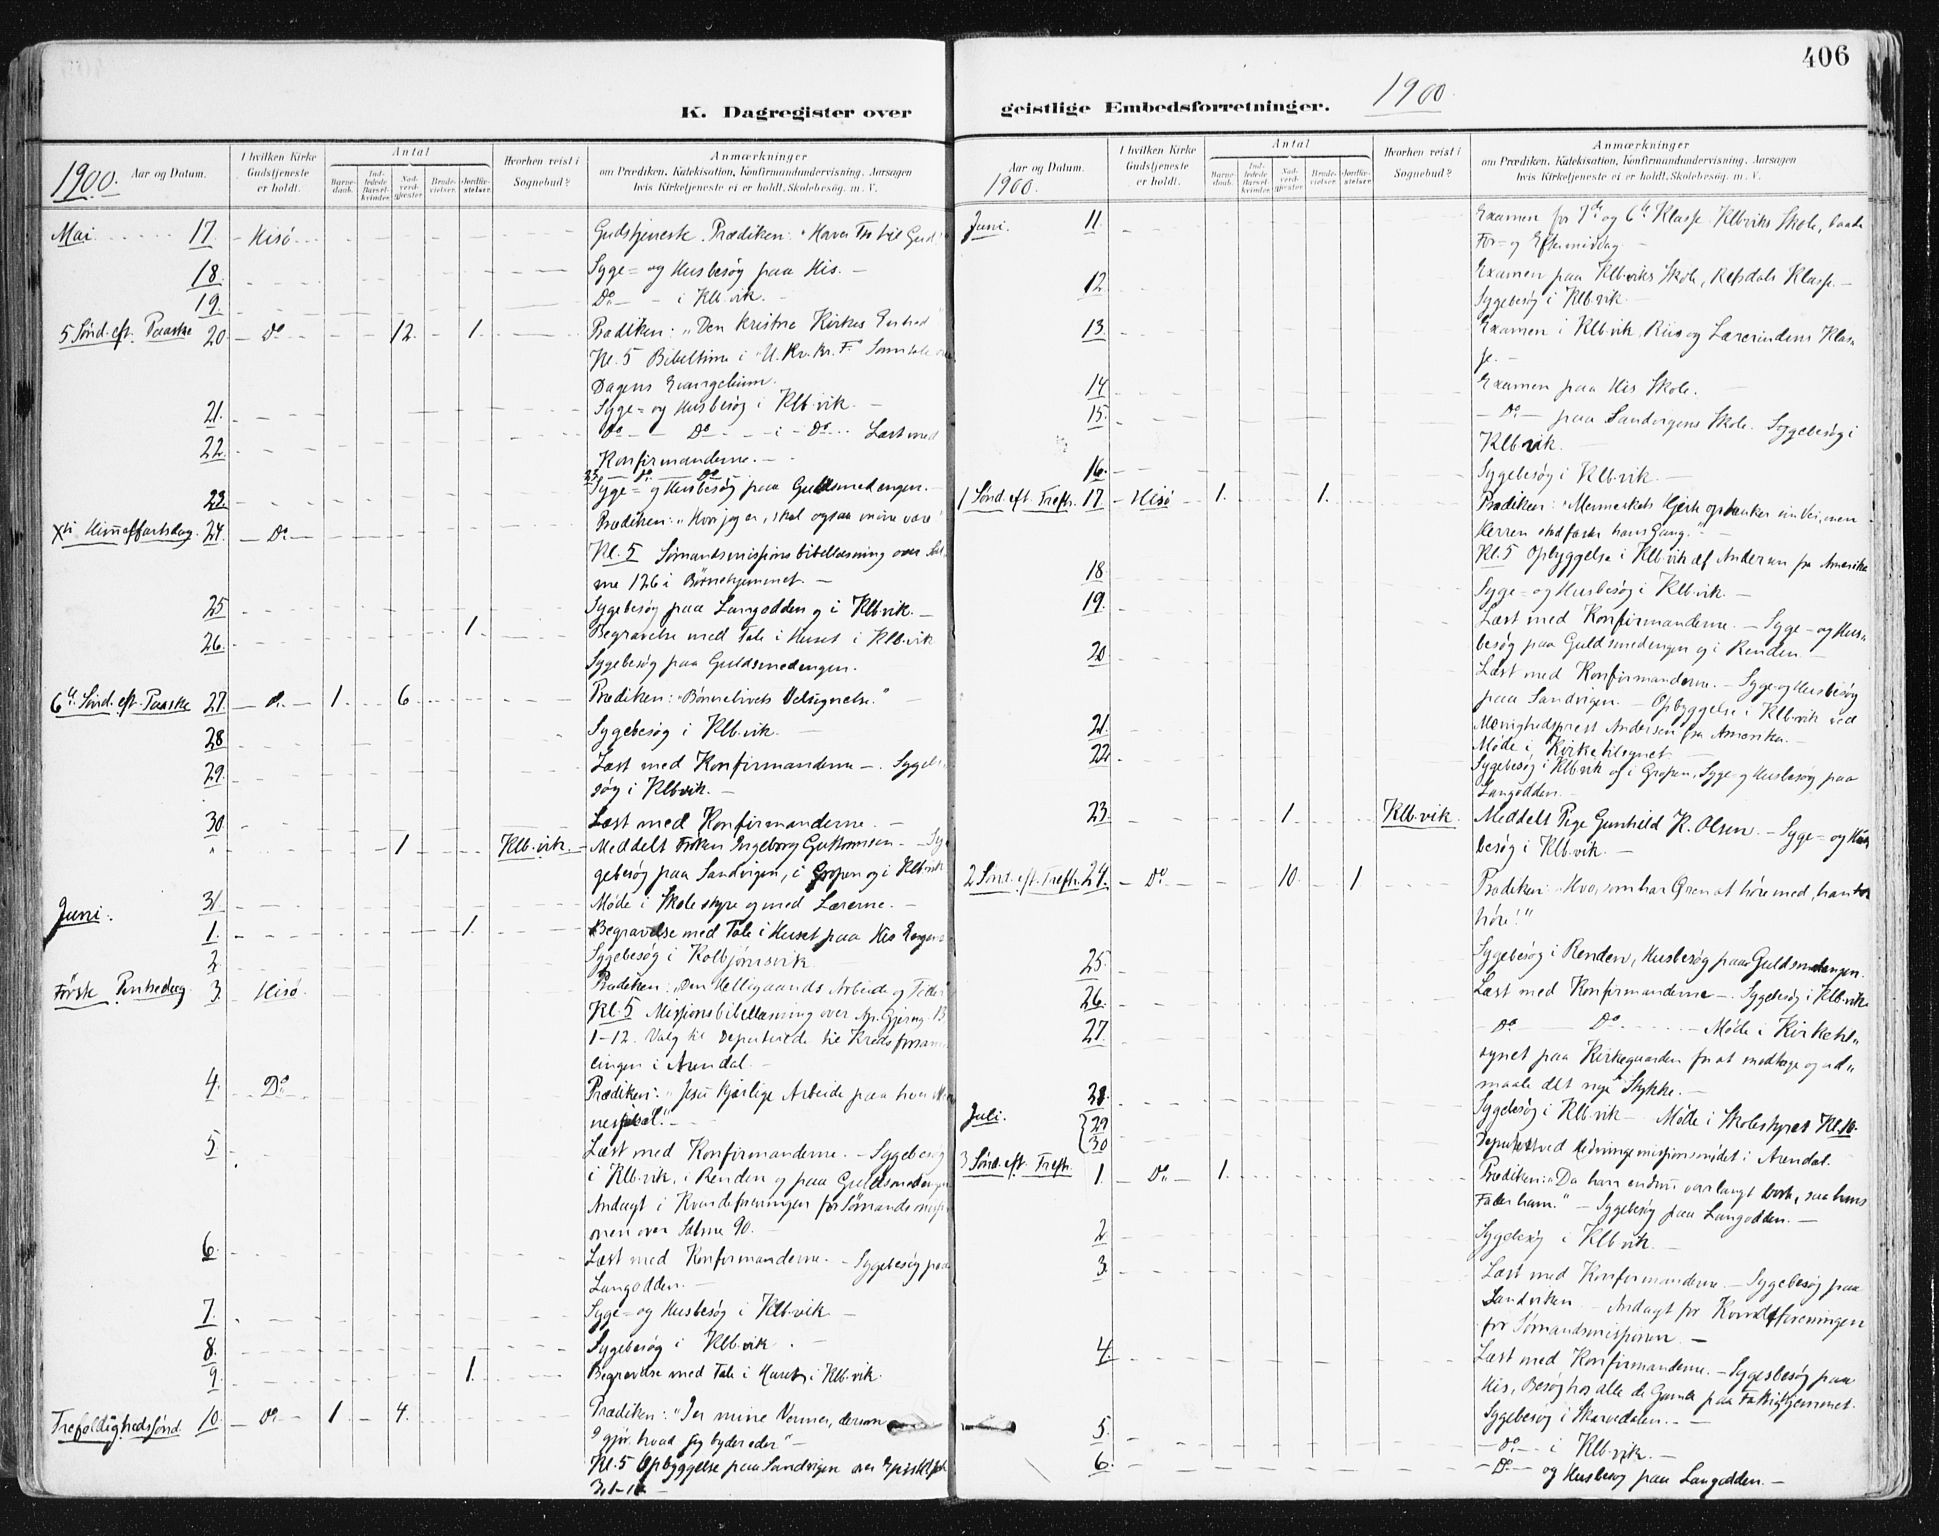 406
K. Dagregister over
1900.
Aar og Datum.
I hvilken Kirke Gudstjeneste er holdt.
Antal
Barnedaab.
Indledede Barselkvinder.
Nadverdgjester.
Brudevielser.
Jordfæstelser.
Hvorhen reist i Sognebud?
Anmærkninger
om Prædiken, Katekisation, Konfirmandundervisning, Aarsagen
hvis Kirketjeneste ei er holdt, Skolebesøg. m. V.
Mai 17. Hisö Gudstjeneste. Prædiken:
18. Syge- og Husbesøg paa His. —
19. Do — i Klb.vik. —
5 Sønd. eft. Paaske 20. Do 12. 1. Prædiken: "Den kristne Kirkes
Kl. 5 Bibeltime i
Dagens Evangelium.
21. Syge- og Husbesøg i Klb.vik. —
22. Do — Do — i Do — Læst med
Konfirmanderne. —
23. Syge- og Husbesøg paa Guldsmedengen. —
Xti Himmelfartsdag 24. Do Prædiken: "Hvor jeg er, skal ogsaa mine være"
Kl. 5 Sømandsmissionsbibellæsning over Sal-
me 126 i Børnehjemmet. —
25 Sygebesøg paa Langodden og i Klb.vik. —
26. 1. Begravelse med Tale i Huset i Klb.vik
Sygebesøg paa Guldsmedengen.
6te Sønd. eft. Paaske 27. Do 1. 6. Prædiken: "Bønnelivets Velsignelse."
28 Sygebesøg i Klb.vik. —
29. Læst med Konfirmanderne —. Sygebe-
søg i Klb.vik. —
30. Læst med Konfirmanderne. —
" 1. Klb.vik. Meddelt Frøken Ingeborg Guttormsen. — Sy-
gebesøg paa Sandvigen, i Gropen og i Klb.vik
31. Møde i Skolestyre og med Lærerne. —
Juni. 1. 1. Begravelse med Tale i Huset paa His
2. Sygebesøg i Kolbjørnsvik
Første Pintsedag 3. Hisö. Prædiken: "Den Helligaands Arbeide
Kl. 5 Missionsbibellæsning over Ap. Gjern. 13
1-12. Valg til Deputerede til Kredsforsam-
lingen i Arendal. —
4. Do Prædiken: "Jesu kjærlige Arbeide paa hver
5. Læst med Konfirmanderne. — Sygebesøg
i Klb.vik, i Renden og paa Guldsmedengen
Andagt i Kvindeforeningen for Sømandsmissi-
onen over Salme 90. —
6 Læst med Konfirmanderne. — Sygebesøg paa
Langodden. —
7. Syge- og Husbesøg i Klb.vik —
8. Sygebesøg i Klb.vik.
9. 1. Begravelse med Tale i Huset i Klb.vik.
Trefoldighedssønd. 10. Do 1. 4. Prædiken: "I er mine Venner, dersom
I gjør, hvad jeg byder eder" —
Kl. 5 Opbyggelse paa Sandvigen over
geistlige Embedsforretninger. 1900.
Aar og Datum.
1900.
I hvilken Kirke Gudstjeneste er holdt.
Antal
Barnedaab.
Indledede Barselkvinder.
Nadverdgjester.
Brudevielser.
Jordfæstelser.
Hvorhen reist i Sognebud?
Anmærkninger
om Prædiken, Katekisation, Konfirmandundervisning, Aarsagen
hvis Kirketjeneste ei er holdt, Skolebesøg. m. V.
Juni. 11. Examen for 7de og 6te Klasse Klbviks Skole, baade
For- og Eftermiddag. —
12. Examen paa Klb.viks Skole, Refsdals Klasse. —
Sygebesøg i Klb.vik —
13. Examen i Klb.vik, Riis og Lærerindens Klas-
se. —
14 Examen paa His Skole. —
15. — Do — paa Sandvigens Skole. Sygebesøg i
Klb.vik.
16. Sygebesøg i Klb.vik. —
1 Sønd. eft. Trefh. 17. Hisö 1. 1. Prædiken: "Menneskets Hjerte optænker sin Vei, men
Herren stadfæster hans Gang." —
Kl. 5 Opbyggelse i Klb.vik af Andersen fra Amerika
18. Syge- og Husbesøg i Klb.vik. —
19. Læst med Konfirmanderne. — Syge- og Hus-
besøg paa Guldsmedengen og i Renden. —
20. Læst med Konfirmanderne. — Syge- og Husbesøg
paa Sandvigen. — Opbyggelse i Klb.vik ved
Menighedsprest Andersen fra Amerika. —
21. Møde i Kirketilsynet —
22 Sygebesøg i Klb.vik og i Gropen, Syge- og Husbesøg paa
Langodden. —
23. 1. Klb.vik. Meddelt Pige Gunhild K. Olsen. — Syge- og Hus-
besøg i Klb.vik. —
2 Sønd. eft. Trefh. 24. Do 10. 1. Prædiken: "Hvo, som har Øren at høre med, han
høre!"
25. Sygebesøg i Renden, Husbesøg paa Guldsmedengen.
26. Læst med Konfirmanderne —. Sygebesøg i Klb.vik
27. — Do — Do — Møde i Kirketil-
synet paa Kirkegaarden for at modtage og ud-
maale det nye Stykke. —
28. Sygebesøg i Klb.vik — Møde i Skolestyret
Juli. 29 30 Deputeret ved Indremissionsmødet i Arendal.
3 Sønd. eft. Trefh. 1. Do 1. Prædiken: "Da han endnu var langt borte, saa hans
Fader ham." — Sygebesøg paa Langodden. —
2. Sygebesøg i Klb.vik. —
3. Læst med Konfirmanderne — Sygebesøg paa
Sandviken. — Andagt for Kvindeforeningen
for Sømandsmissionen. —
4. Læst med Konfirmanderne. — Sygebesøg paa
His, Besøg hos alle de Gamle paa Fattighjemmet.
Sygebesøg i Skarvedalen. —
5. — Do — i Klb.vik. —
6. — Do — og Husbesøg paa Langodden. —